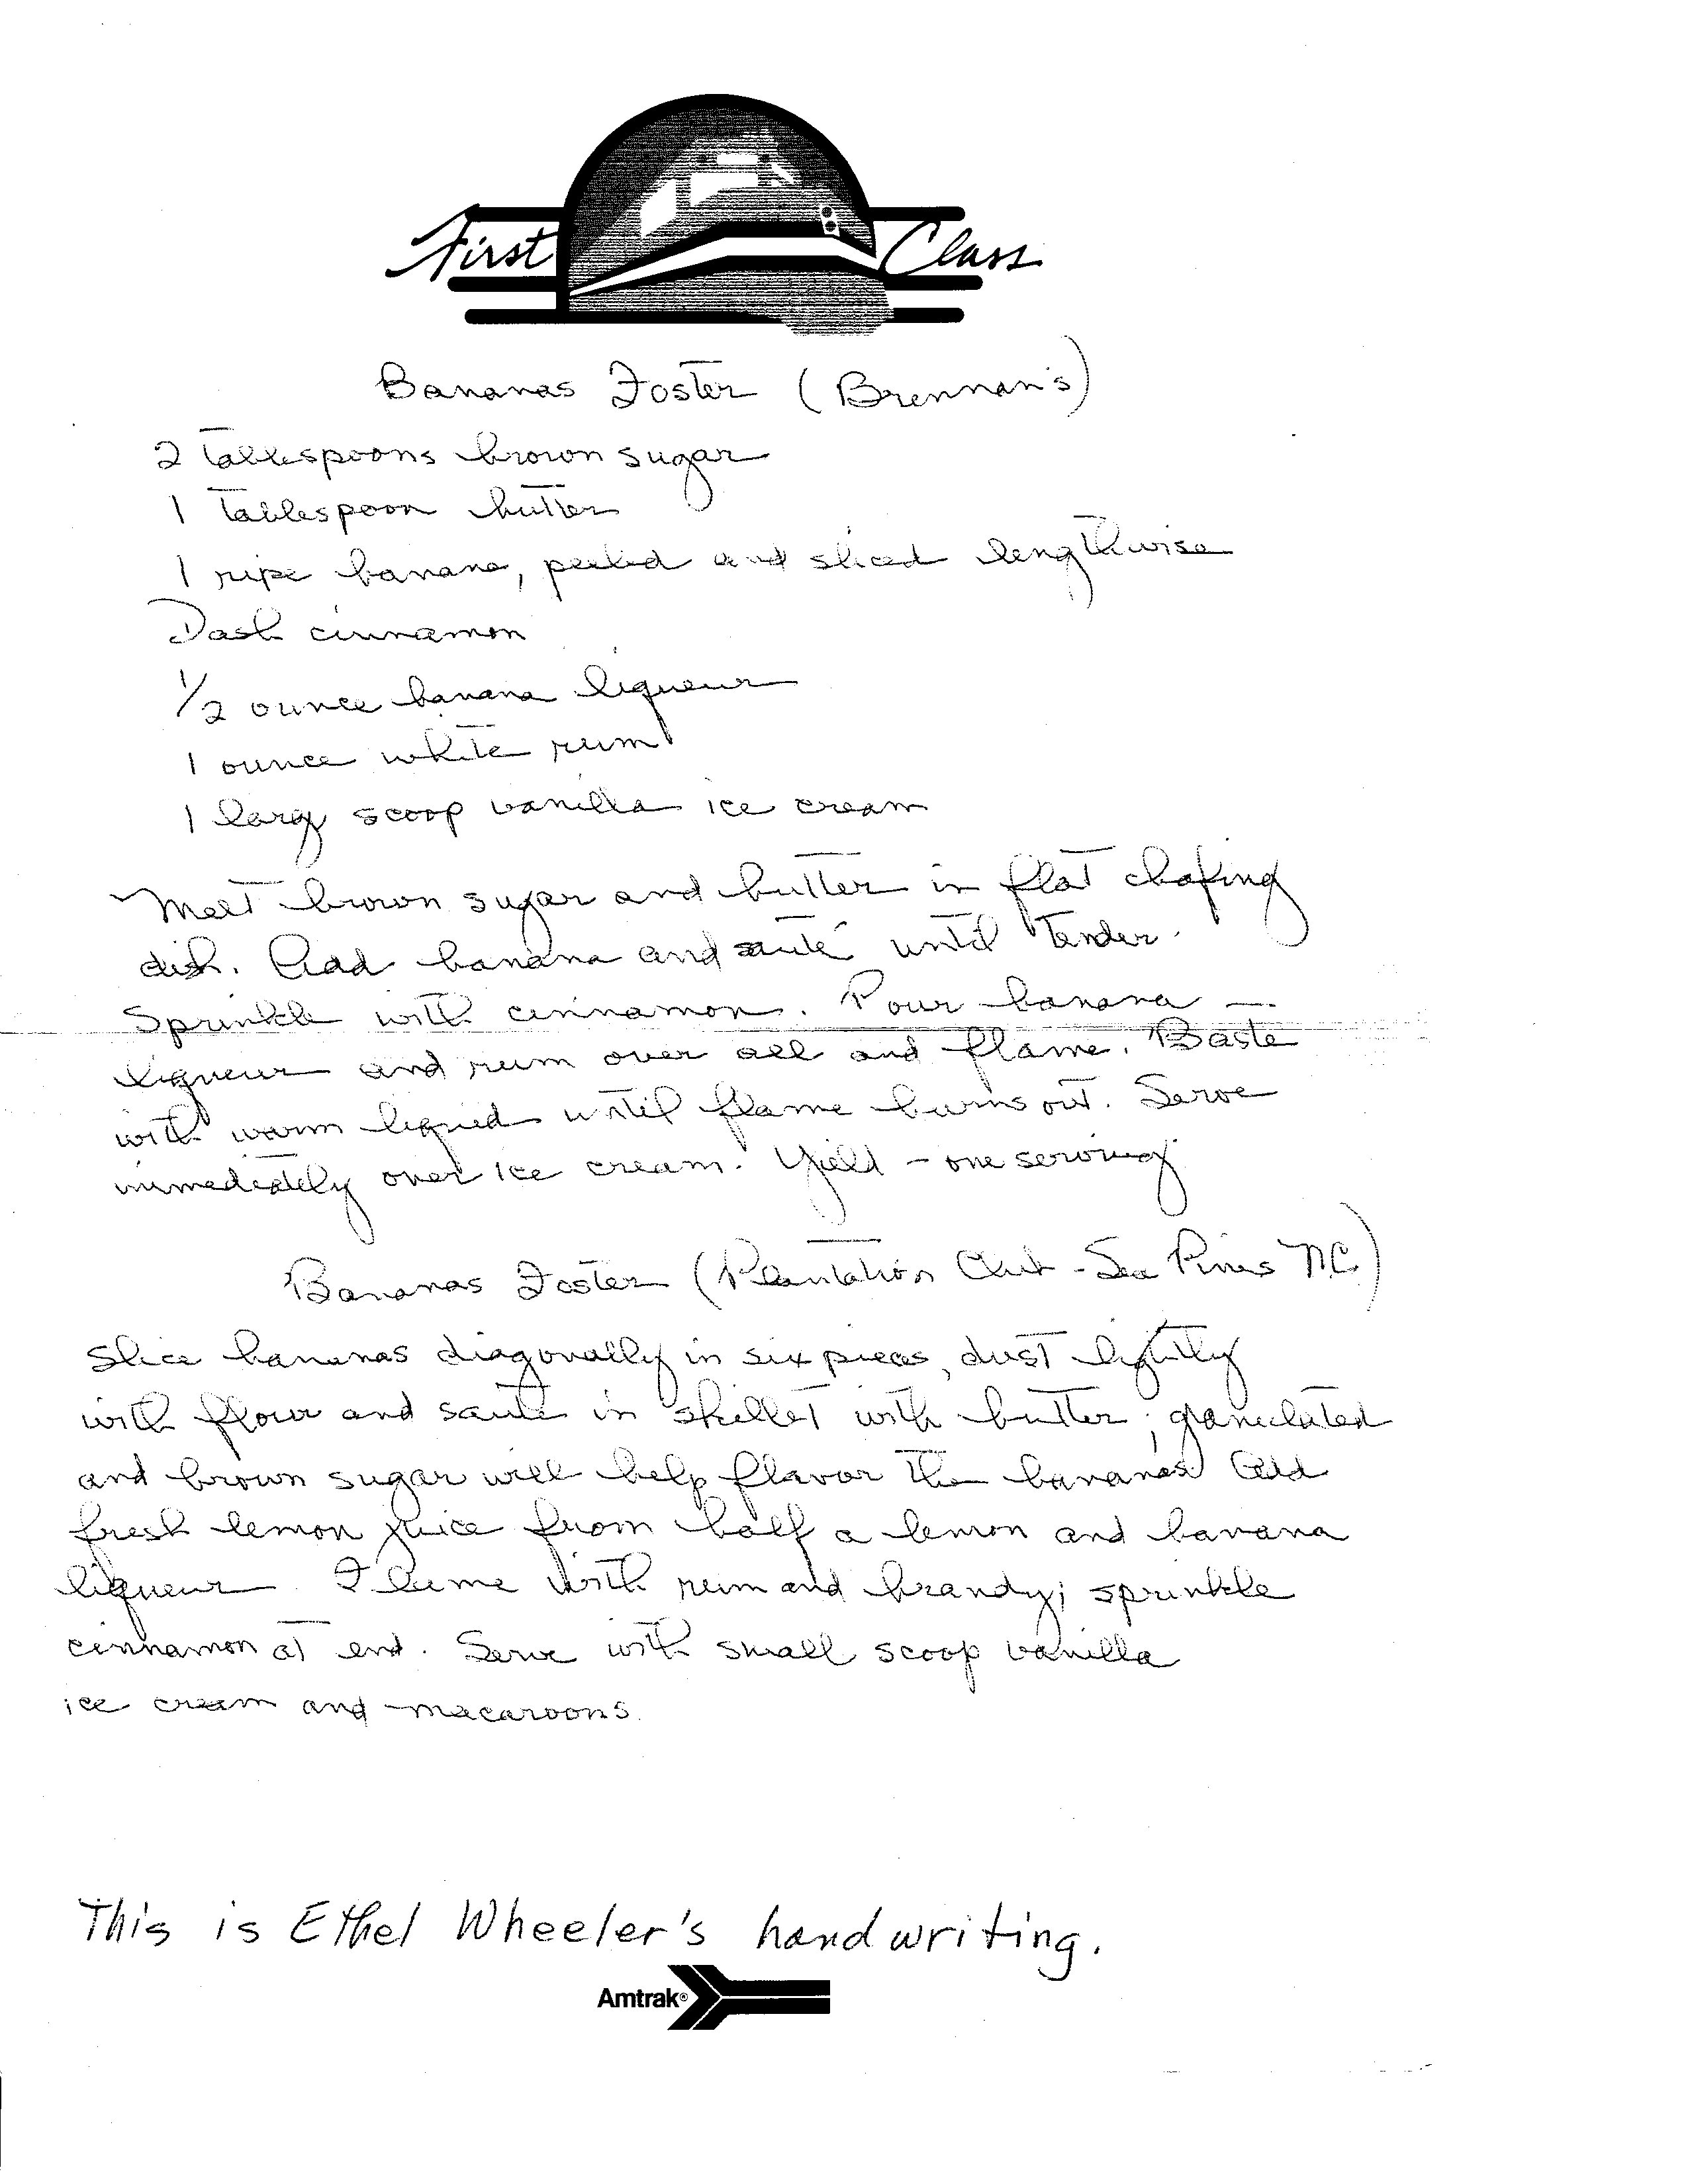 First Class
Bananas Foster (Brennan's)
2 tablespoons brown sugar
1 tablespoon butter
1 ripe banana, peeled and sliced lengthwise
Dash cinnamon
1/2 ounce banana liqueur
1 ounce white rum
1 larg scoop vanilla ice cream
Melt brown sugar and butter in flat chafing
dish. Add banana and sauté until tender.
Sprinkle with cinnamon. Pour banana –
liqueur and rum over all and flame. Baste
with warm liquid until flame burns out. Serve
immediately over ice cream. Yield – one serving
Bananas Foster (Plantation Club - Sea Pines N.C.)
Slice bananas diagonally in six pieces, dust lightly
with flour and sauté in skillet with butter; granulated
and brown sugar will help flavor the bananas. Add
fresh lemon juice from half a lemon and banana
liqueur. Flame with rum and brandy; sprinkle
cinnamon at end. Serve with small scoop vanilla
ice cream and macaroons.
This is Ethel Wheeler's handwriting.
Amtrak®